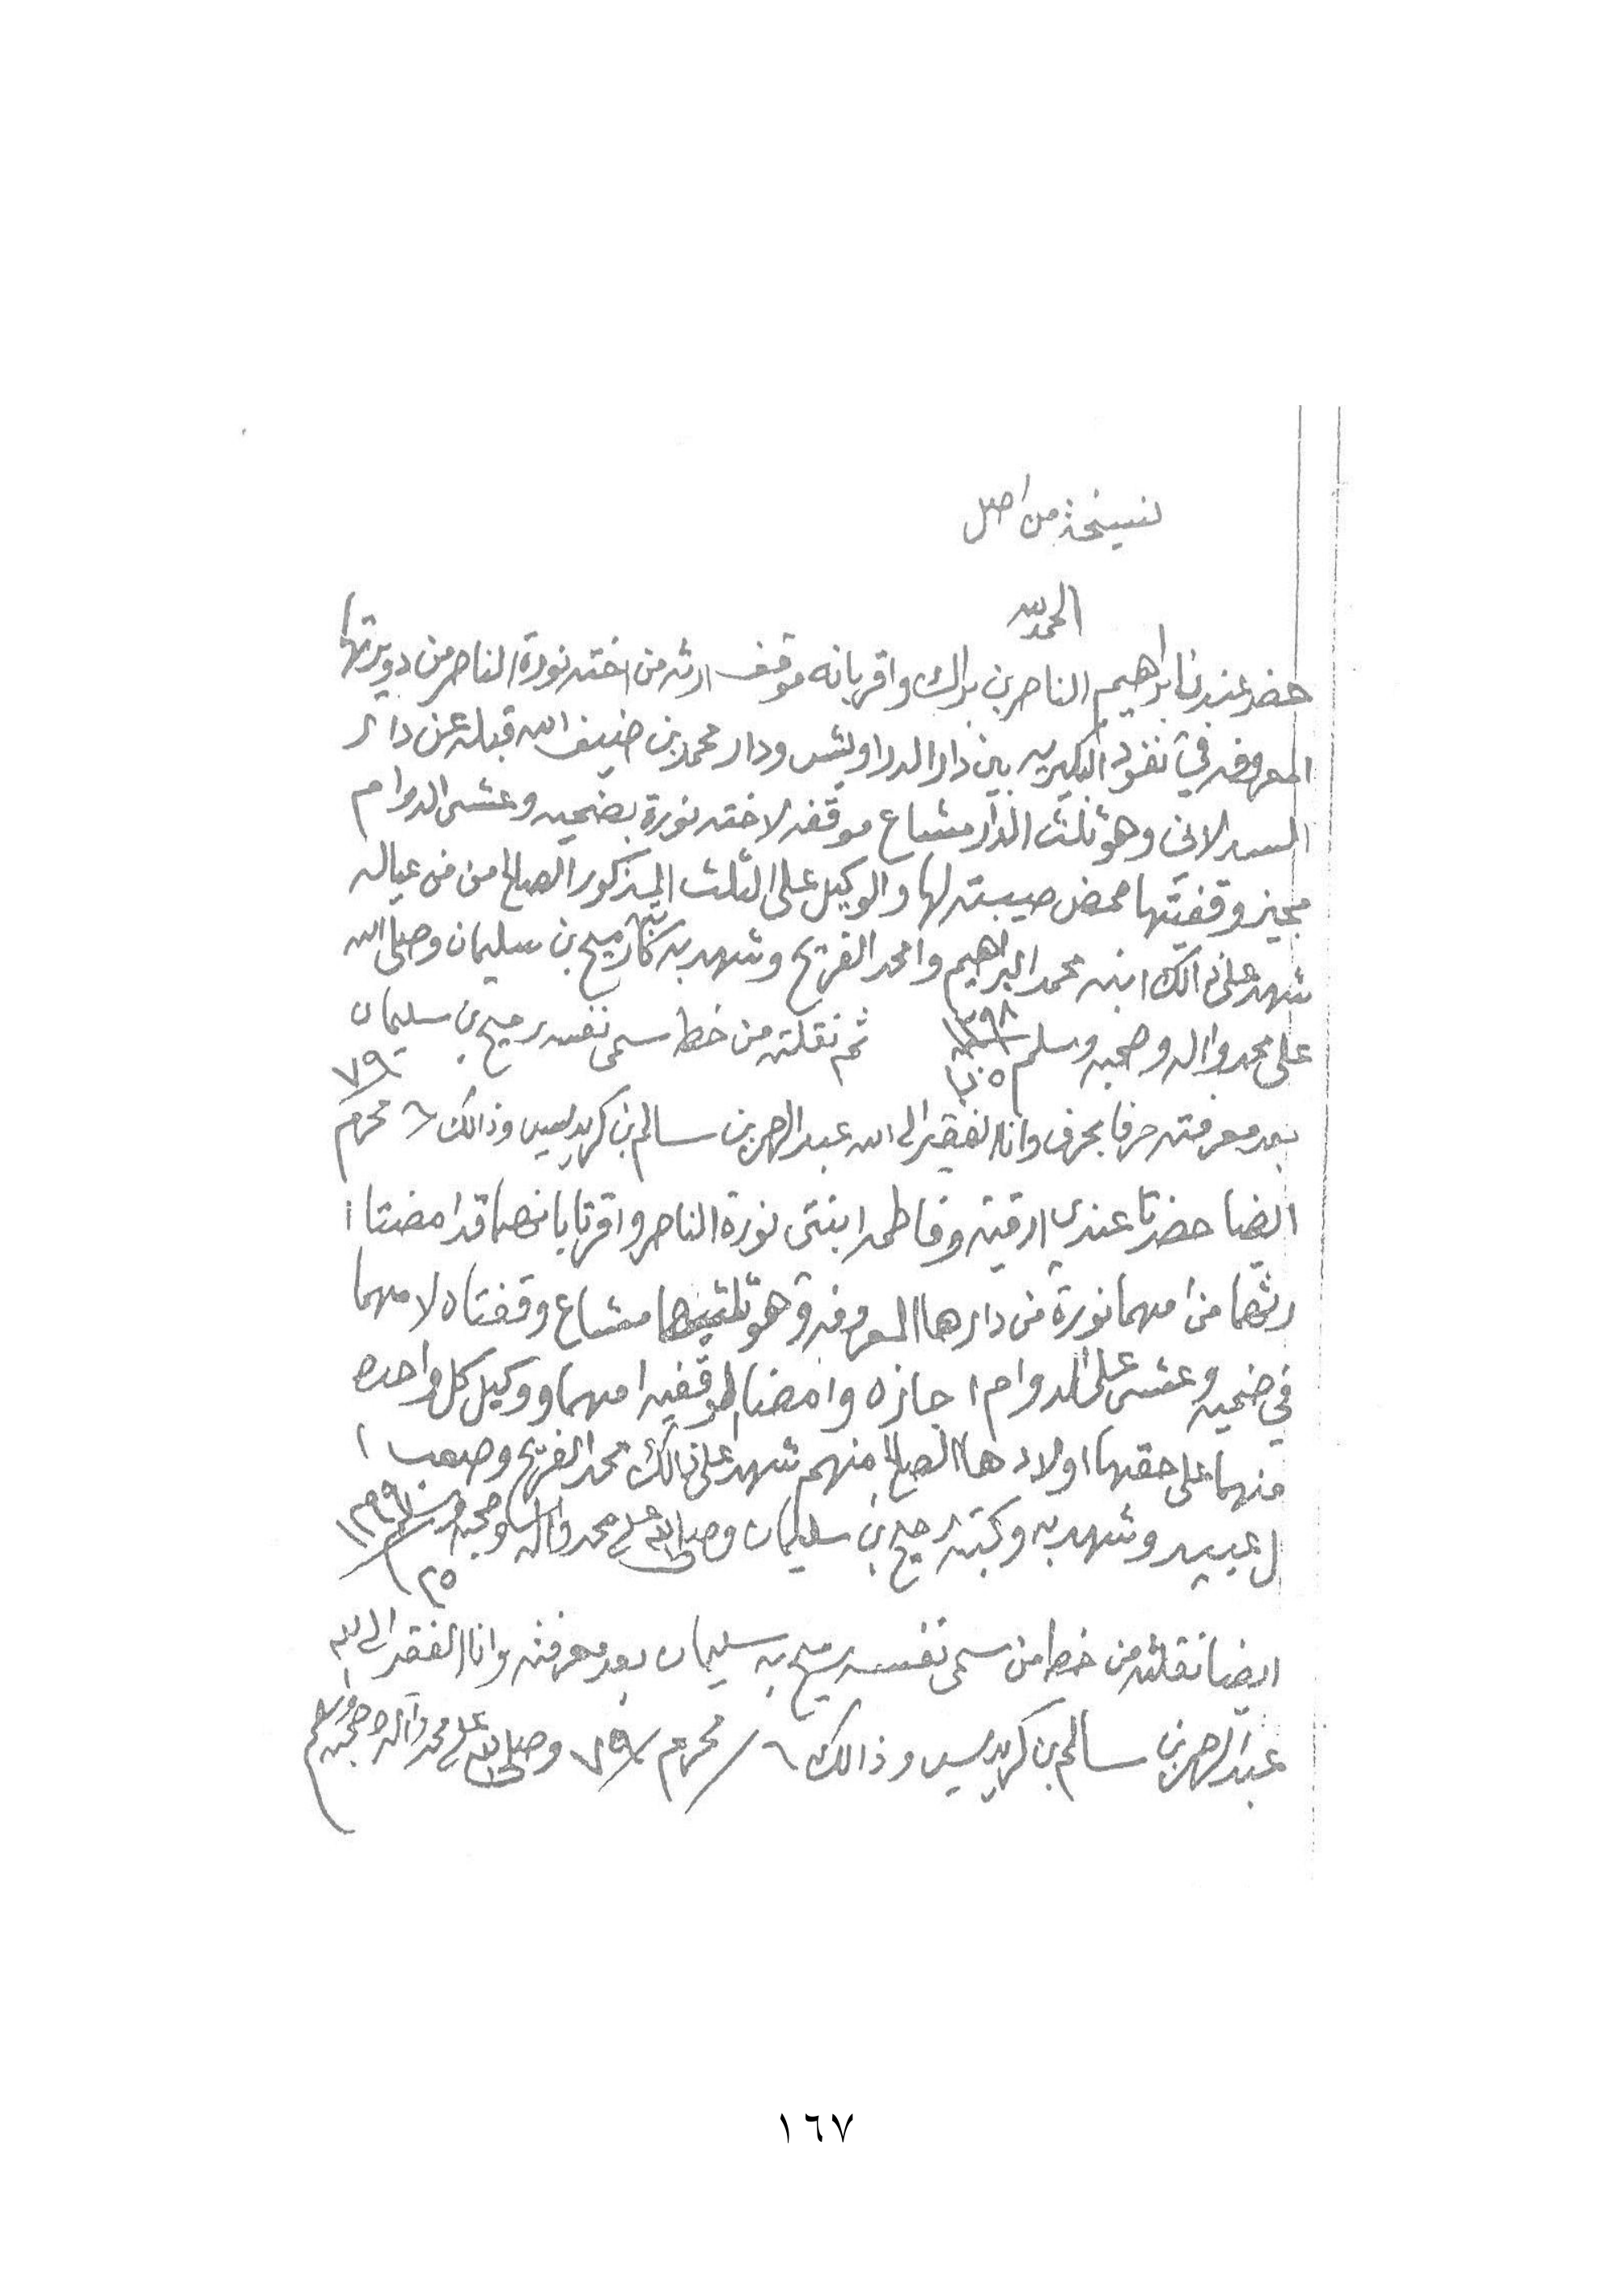 نسخة من اصل
الحمد لله
حضر عندنا ابراهيم الناصر بن براك واقر بانه موقف ارثه من اخته نورة الناصر من دويرتها
المعروفه في نفود البكيريه بين دار الدراويش ودار محمد بن ضيف الله قبله عن دار
السدلاني وهو ثلث الدار مشاع موقفه لاخته نورة بضحيه وعشى الدوام
مجيز وقفيتها محض صيبته لها والوكيل على الثلث المذكور الصالح من من عياله
شهد على ذالك ابنه محمد البراهيم وامحمد الفريح وشهد به كاتبه رميح بن سليمان وصلى الله
على محمد واله وصحبه وسلم ١٣٩٨ ثم نقلته من خط من سمى نفسه رميح بن سليمان
بعد معرفته حرفا بحرف وانا الفقير الى الله عبدالرحمن بن سالم بن كريديس وذالك ٦ محرم ٧٩
ايضا حضرتا عندي ارقيه وفاطمه ابنتي نورة الناصر واقرتا بانهما قد امضتا ا
رثهما من امهما نورة من دارها المعروفه وهو ثلثيها مشاع وقفتاه لامهما
في ضحيه وعشى على الدوام اجازه وامضا لوقفيه امهما ووكيل كل واحده
منهما على حقها اولادها الصالح منهم شهد على ذالك محمد الفريح وصعب ا
ل عبيد وشهد به وكتبه رميح بن سليمان وصلى الله على محمد واله وصحبه وسلم
ايضا نقلته من خط من سمى نفسه رميح بن سليمان بعد معرفته وانا الفقير الى الله
عبدالرحمن بن سالم بن كريديس وذالك ٦ / محرم / ٧٩ وصلى الله على محمد واله وصحبه وسلم
١٦٧